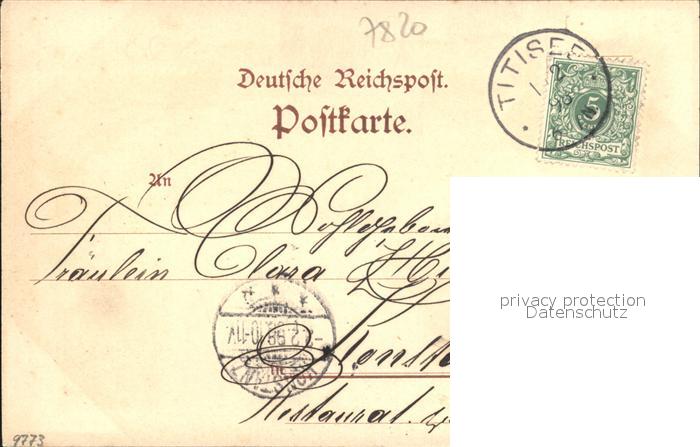 7820
TITISEE
5
REICHSPOST
Deutsche Reichspost.
Postkarte.
An
Wohlgeboren
Fräulein Clara
privacy protection
Datenschutz
Konst
Restaurat.
9773